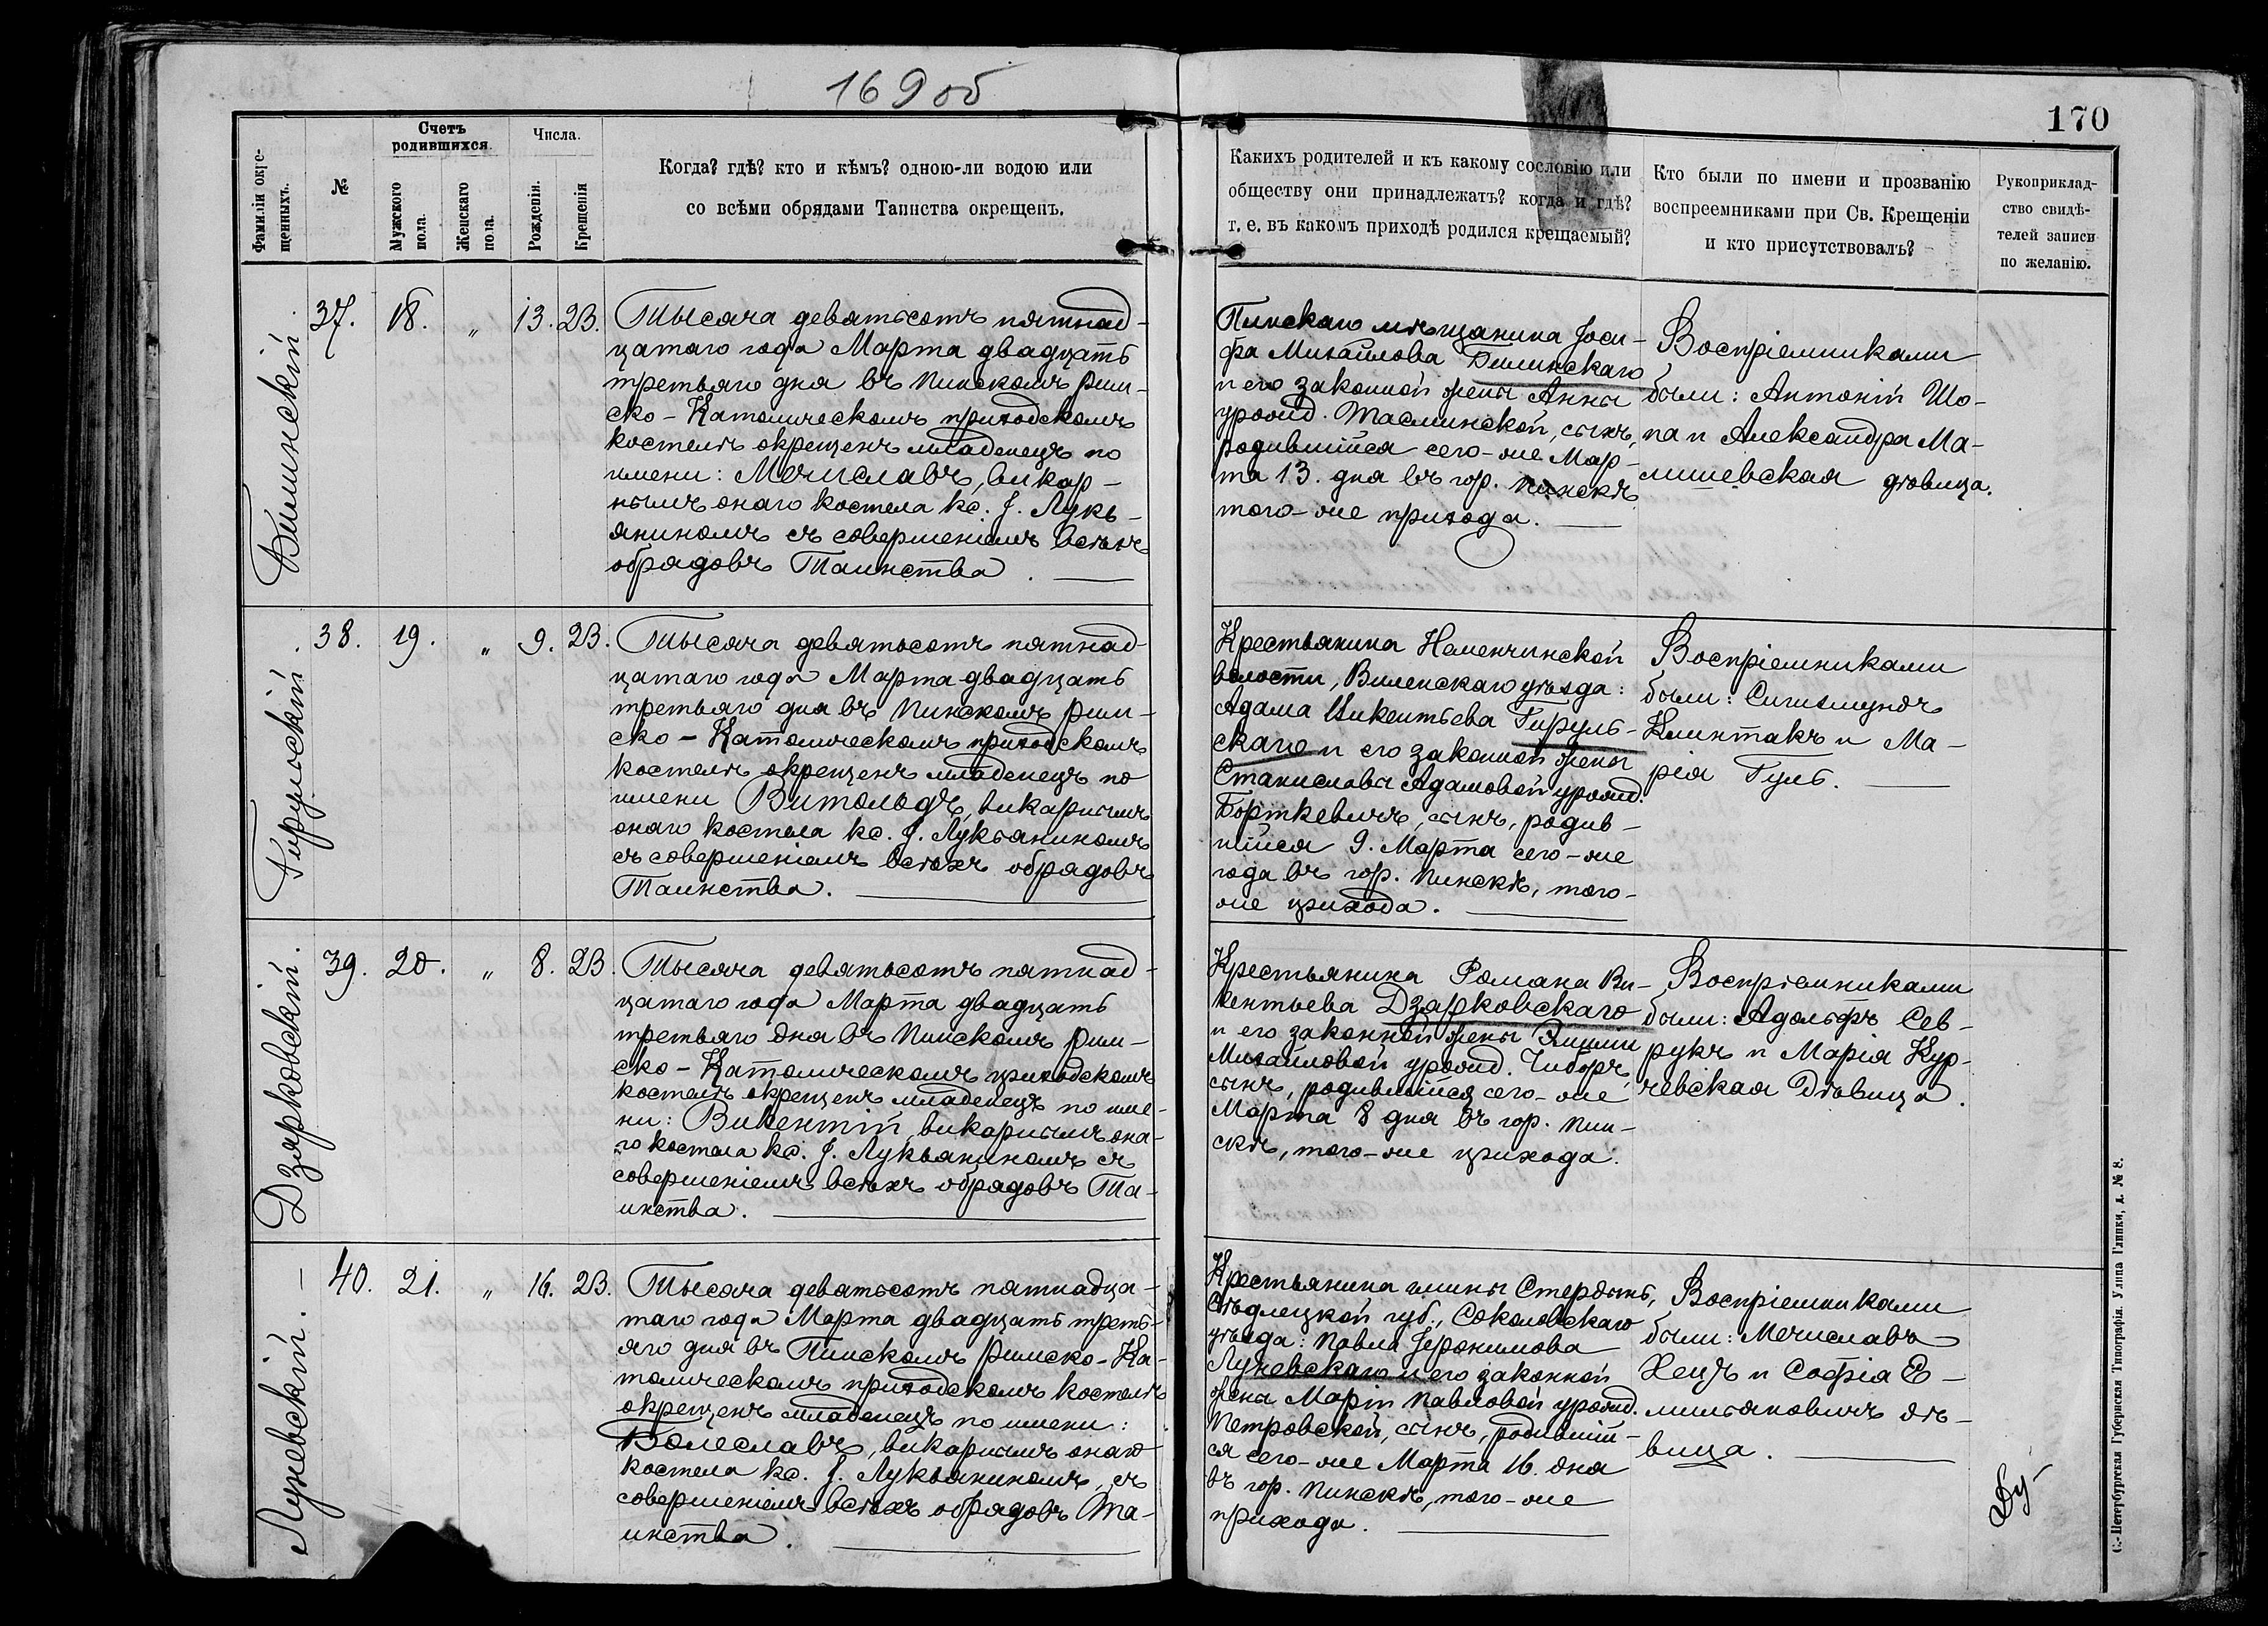 169 об
170
Фамиліи окре-
щенныхъ.
№
Счетъ
родившихся.
Мужского
пола.
Женскаго
пола.
Числа.
Рожденія.
Крещенія
Когда? гдѣ? кто и кѣмъ? одною-ли водою или
со всѣми обрядами Таинства окрещенъ.
Какихъ родителей и къ какому сословію или
обществу они принадлежатъ? когда и гдѣ?
т. е. въ какомъ приходѣ родился крещаемый?
Кто были по имени и прозванію
воспреемниками при Св. Крещеніи
и кто присутствовалъ?
Рукоприклад-
ство свидѣ-
телей записи
по желанію.
Билинскій.
37. 18. „ 13. 23.
Тысяча девятьсотъ пятнад-
цатаго года Марта двадцать
третьяго дня въ Пинскомъ рим-
ско-Католическомъ приходскомъ
костелѣ окрещенъ младенецъ по
имени: Мечиславъ, викар-
нымъ онаго костела кс. І. Лукь-
яниномъ съ совершеніемъ всѣхъ
обрядовъ Таинства.
Пинскаго мѣщанина Іоси-
фа Михайлова Билинскаго
и его законной жены Анны
урожд. Таслинской, сынъ,
родившійся сего-же Мар-
та 13. дня въ гор. Пинскѣ
того-же прихода.
Воспріемниками
были: Антоній Шо-
па и Александра Ма-
лишевская дѣвица.
Гирульскій.
38. 19. „ 9. 23.
Тысяча девятьсотъ пятнад-
цатаго года Марта двадцать
третьяго дня въ Пинскомъ рим-
ско-Католическомъ приходскомъ
костелѣ окрещенъ младенецъ по
имени Витольдъ, викарнымъ
онаго костела кс. І. Лукьяниномъ
съ совершеніемъ всѣхъ обрядовъ
Таинства.
Крестьянина Неменчинской
волости, Виленскаго уѣзда:
Адама Викентьева Гируль-
скаго и его законной жены
Станиславы Адамовой урожд.
Борткевичъ, сынъ, родив-
шійся 9. Марта сего-же
года въ гор. Пинскѣ, того-
же прихода.
Воспріемниками
были: Сигизмундъ
Климтакъ и Ма-
рія Гуль.
Дзярковскій.
39. 20. „ 8. 23.
Тысяча девятьсотъ пятнад-
цатаго года Марта двадцать
третьяго дня въ Пинскомъ рим-
ско-Католическомъ приходскомъ
костелѣ окрещенъ младенецъ по име-
ни: Викентій, викарнымъ она-
го костела кс. І. Лукьяниномъ съ
совершеніемъ всѣхъ обрядовъ Та-
инства.
Крестьянина Романа Ви-
кентьева Дзярковскаго
и его законной жены Эмиліи
Михайловой урожд. Чиборъ,
сынъ, родившійся сего-же
Марта 8 дня въ гор. Пин-
скѣ, того-же прихода.
Воспріемниками
были: Адольфъ Сев-
рукъ и Марія Кур-
чевская дѣвица.
Луневскій. —
40. 21. „ 16. 23.
Тысяча девятьсотъ пятнадца-
таго года Марта двадцать треть-
яго дня въ Пинскомъ римско-Ка-
толическомъ приходскомъ костелѣ
окрещенъ младенецъ по имени:
Болеславъ, викарнымъ онаго
костела кс. І. Лукьяниномъ, съ
совершеніемъ всѣхъ обрядовъ Та-
инства.
Крестьянина гмины Стердынь,
Сѣдлецкой губ., Соколовскаго
уѣзда: Павла Іеронимова
Луневскаго и его законной
жены Маріи Павловой урожд.
Петровской, сынъ, родившій-
ся сего-же Марта 16. дня
въ гор. Пинскѣ, того-же
прихода.
Воспріемниками
были: Мечиславъ
Хецъ и Софія Е-
мильяновичъ дѣ-
вица.
С.-Петербургская Губернская Типографія. Улица Глинки, д. № 8.